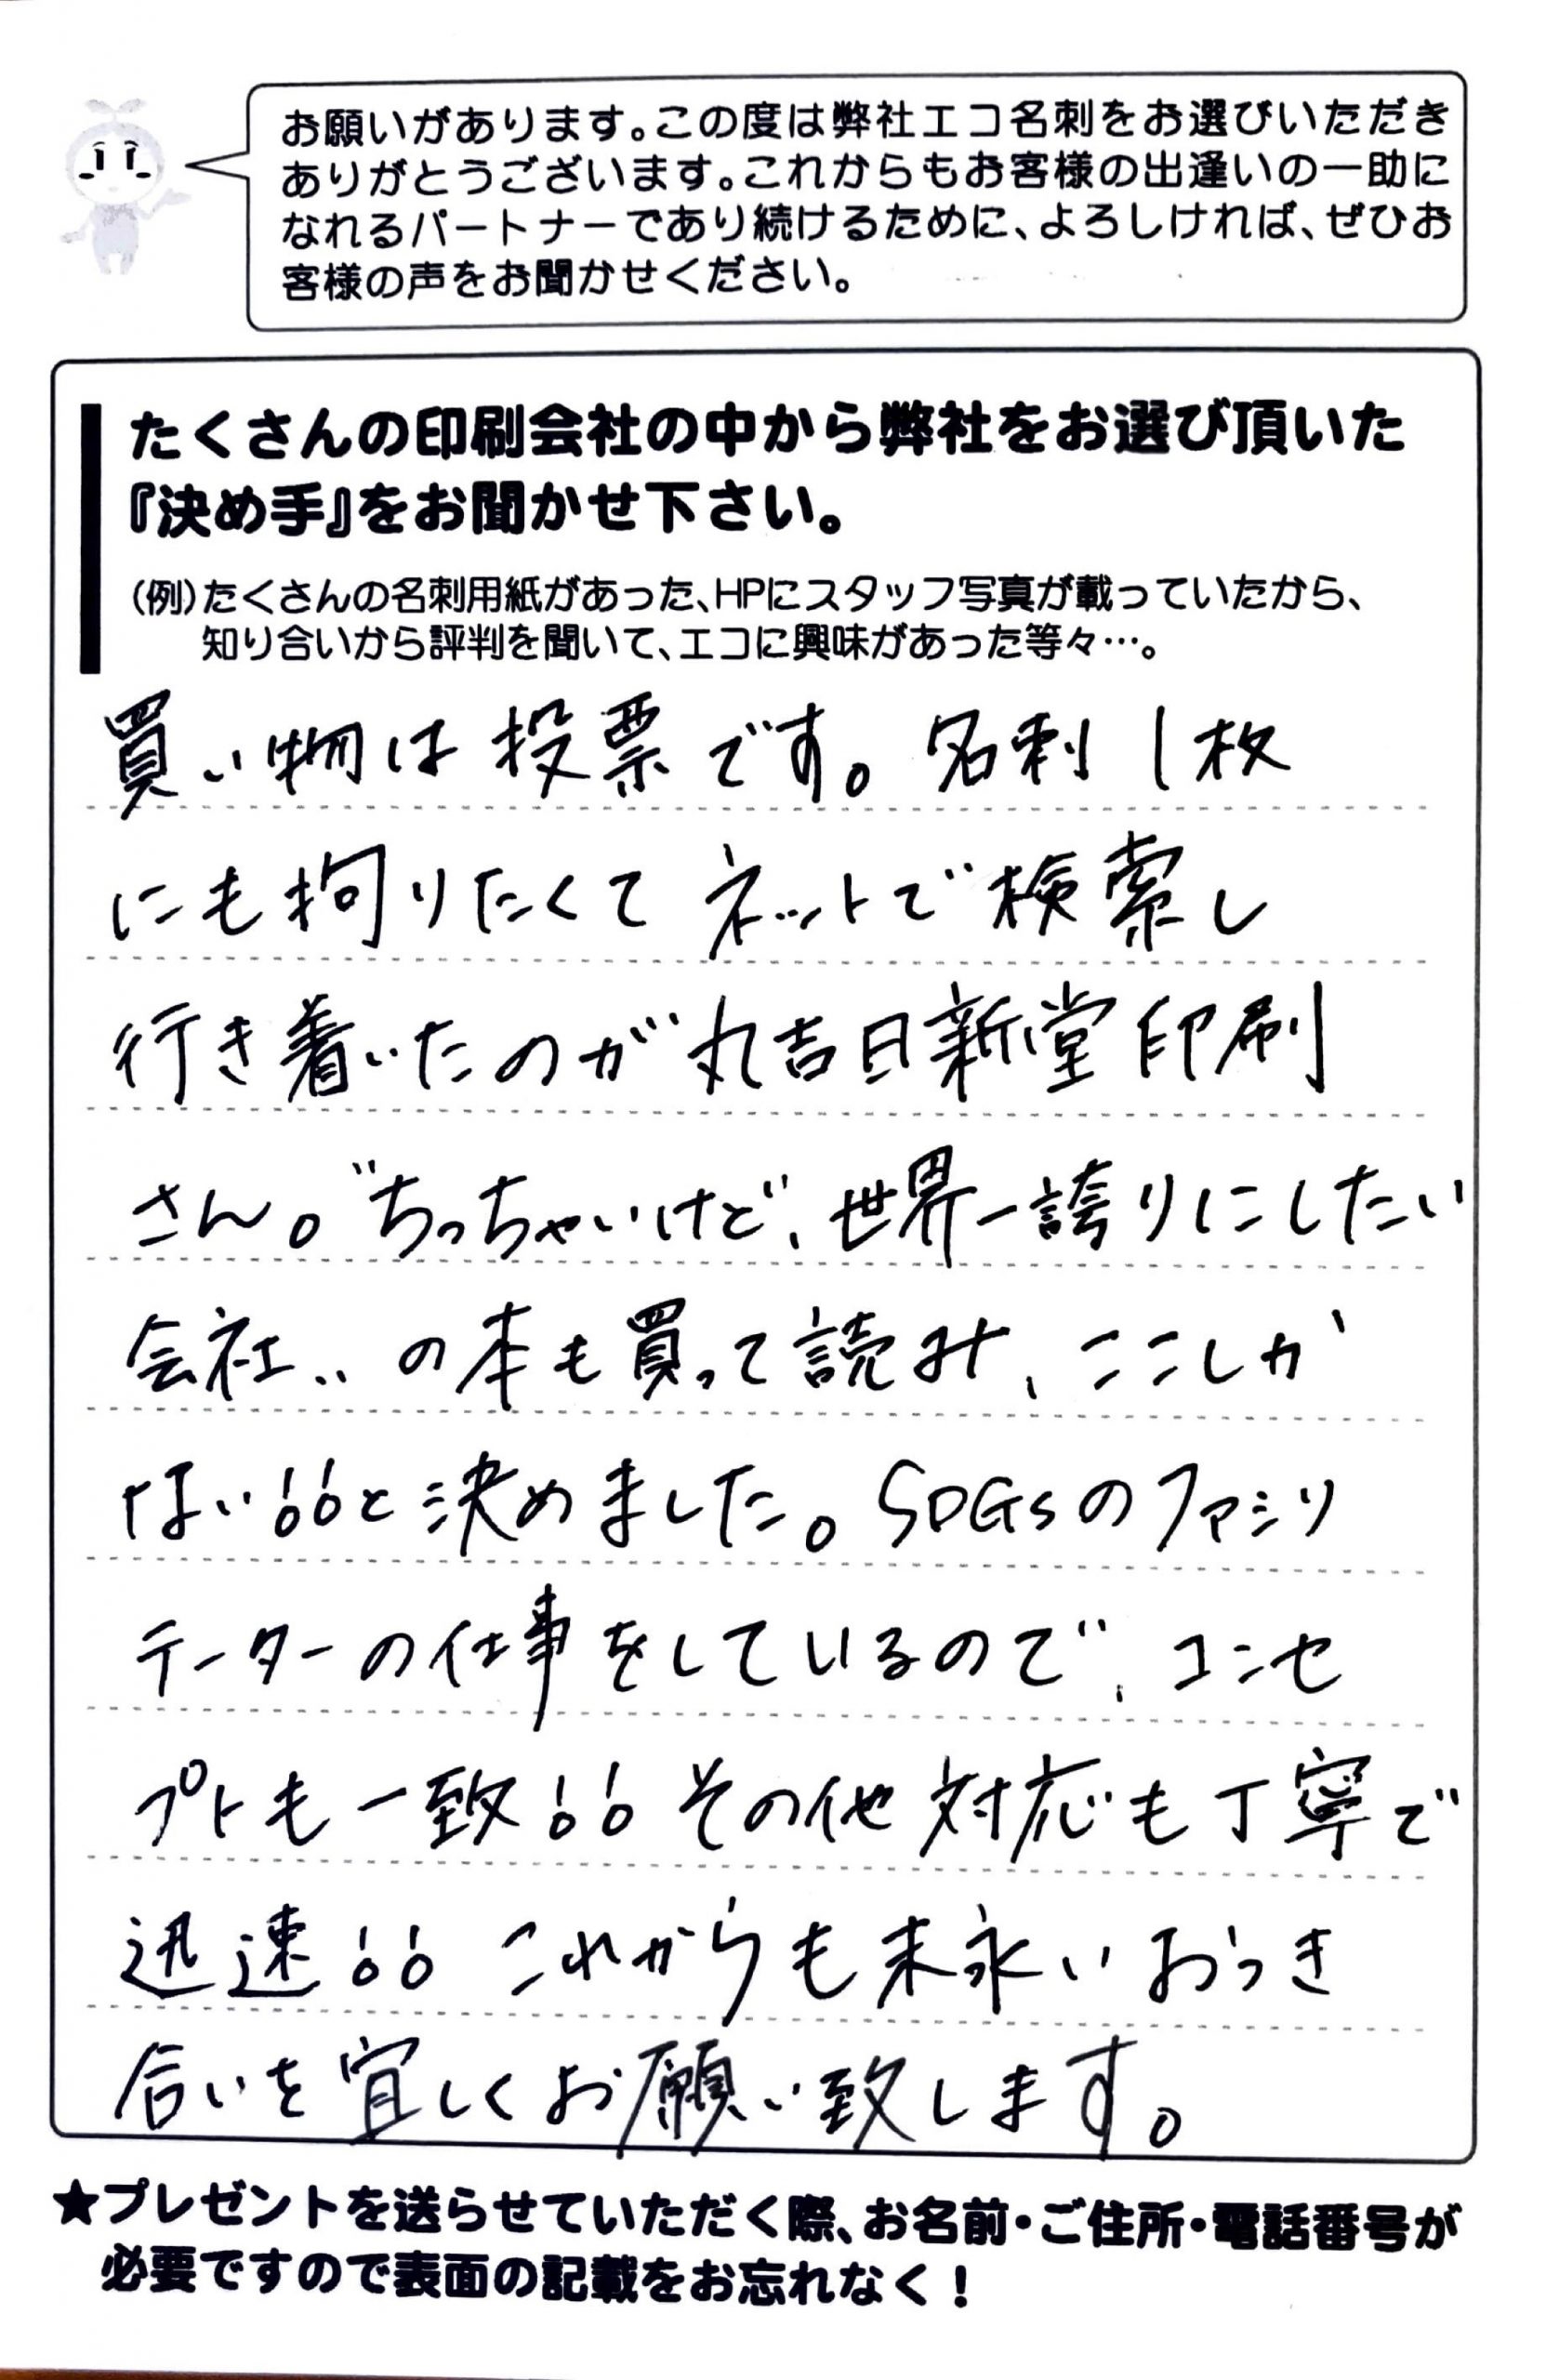 お願いがあります。この度は弊社エコ名刺をお選びいただき
ありがとうございます。これからもお客様の出逢いの一助に
なれるパートナーであり続けるために、よろしければ、ぜひお
客様の声をお聞かせください。
たくさんの印刷会社の中から弊社をお選び頂いた
『決め手』をお聞かせ下さい。
(例)たくさんの名刺用紙があった、HPにスタッフ写真が載っていたから、
知り合いから評判を聞いて、エコに興味があった等々…。
買い物は投票です。名刺1枚
にも拘りたくてネットで検索し
行き着いたのが丸吉日新堂印刷
さん。"ちっちゃいけど、世界一誇りにしたい
会社"の本も買って読み、ここしか
ない!!と決めました。SDGsのファシリ
テーターの仕事をしているので、コンセ
プトも一致!!その他対応も丁寧で
迅速!!これからも末永いおつき
合いを宜しくお願い致します。
★プレゼントを送らせていただく際、お名前・ご住所・電話番号が
必要ですので表面の記載をお忘れなく!